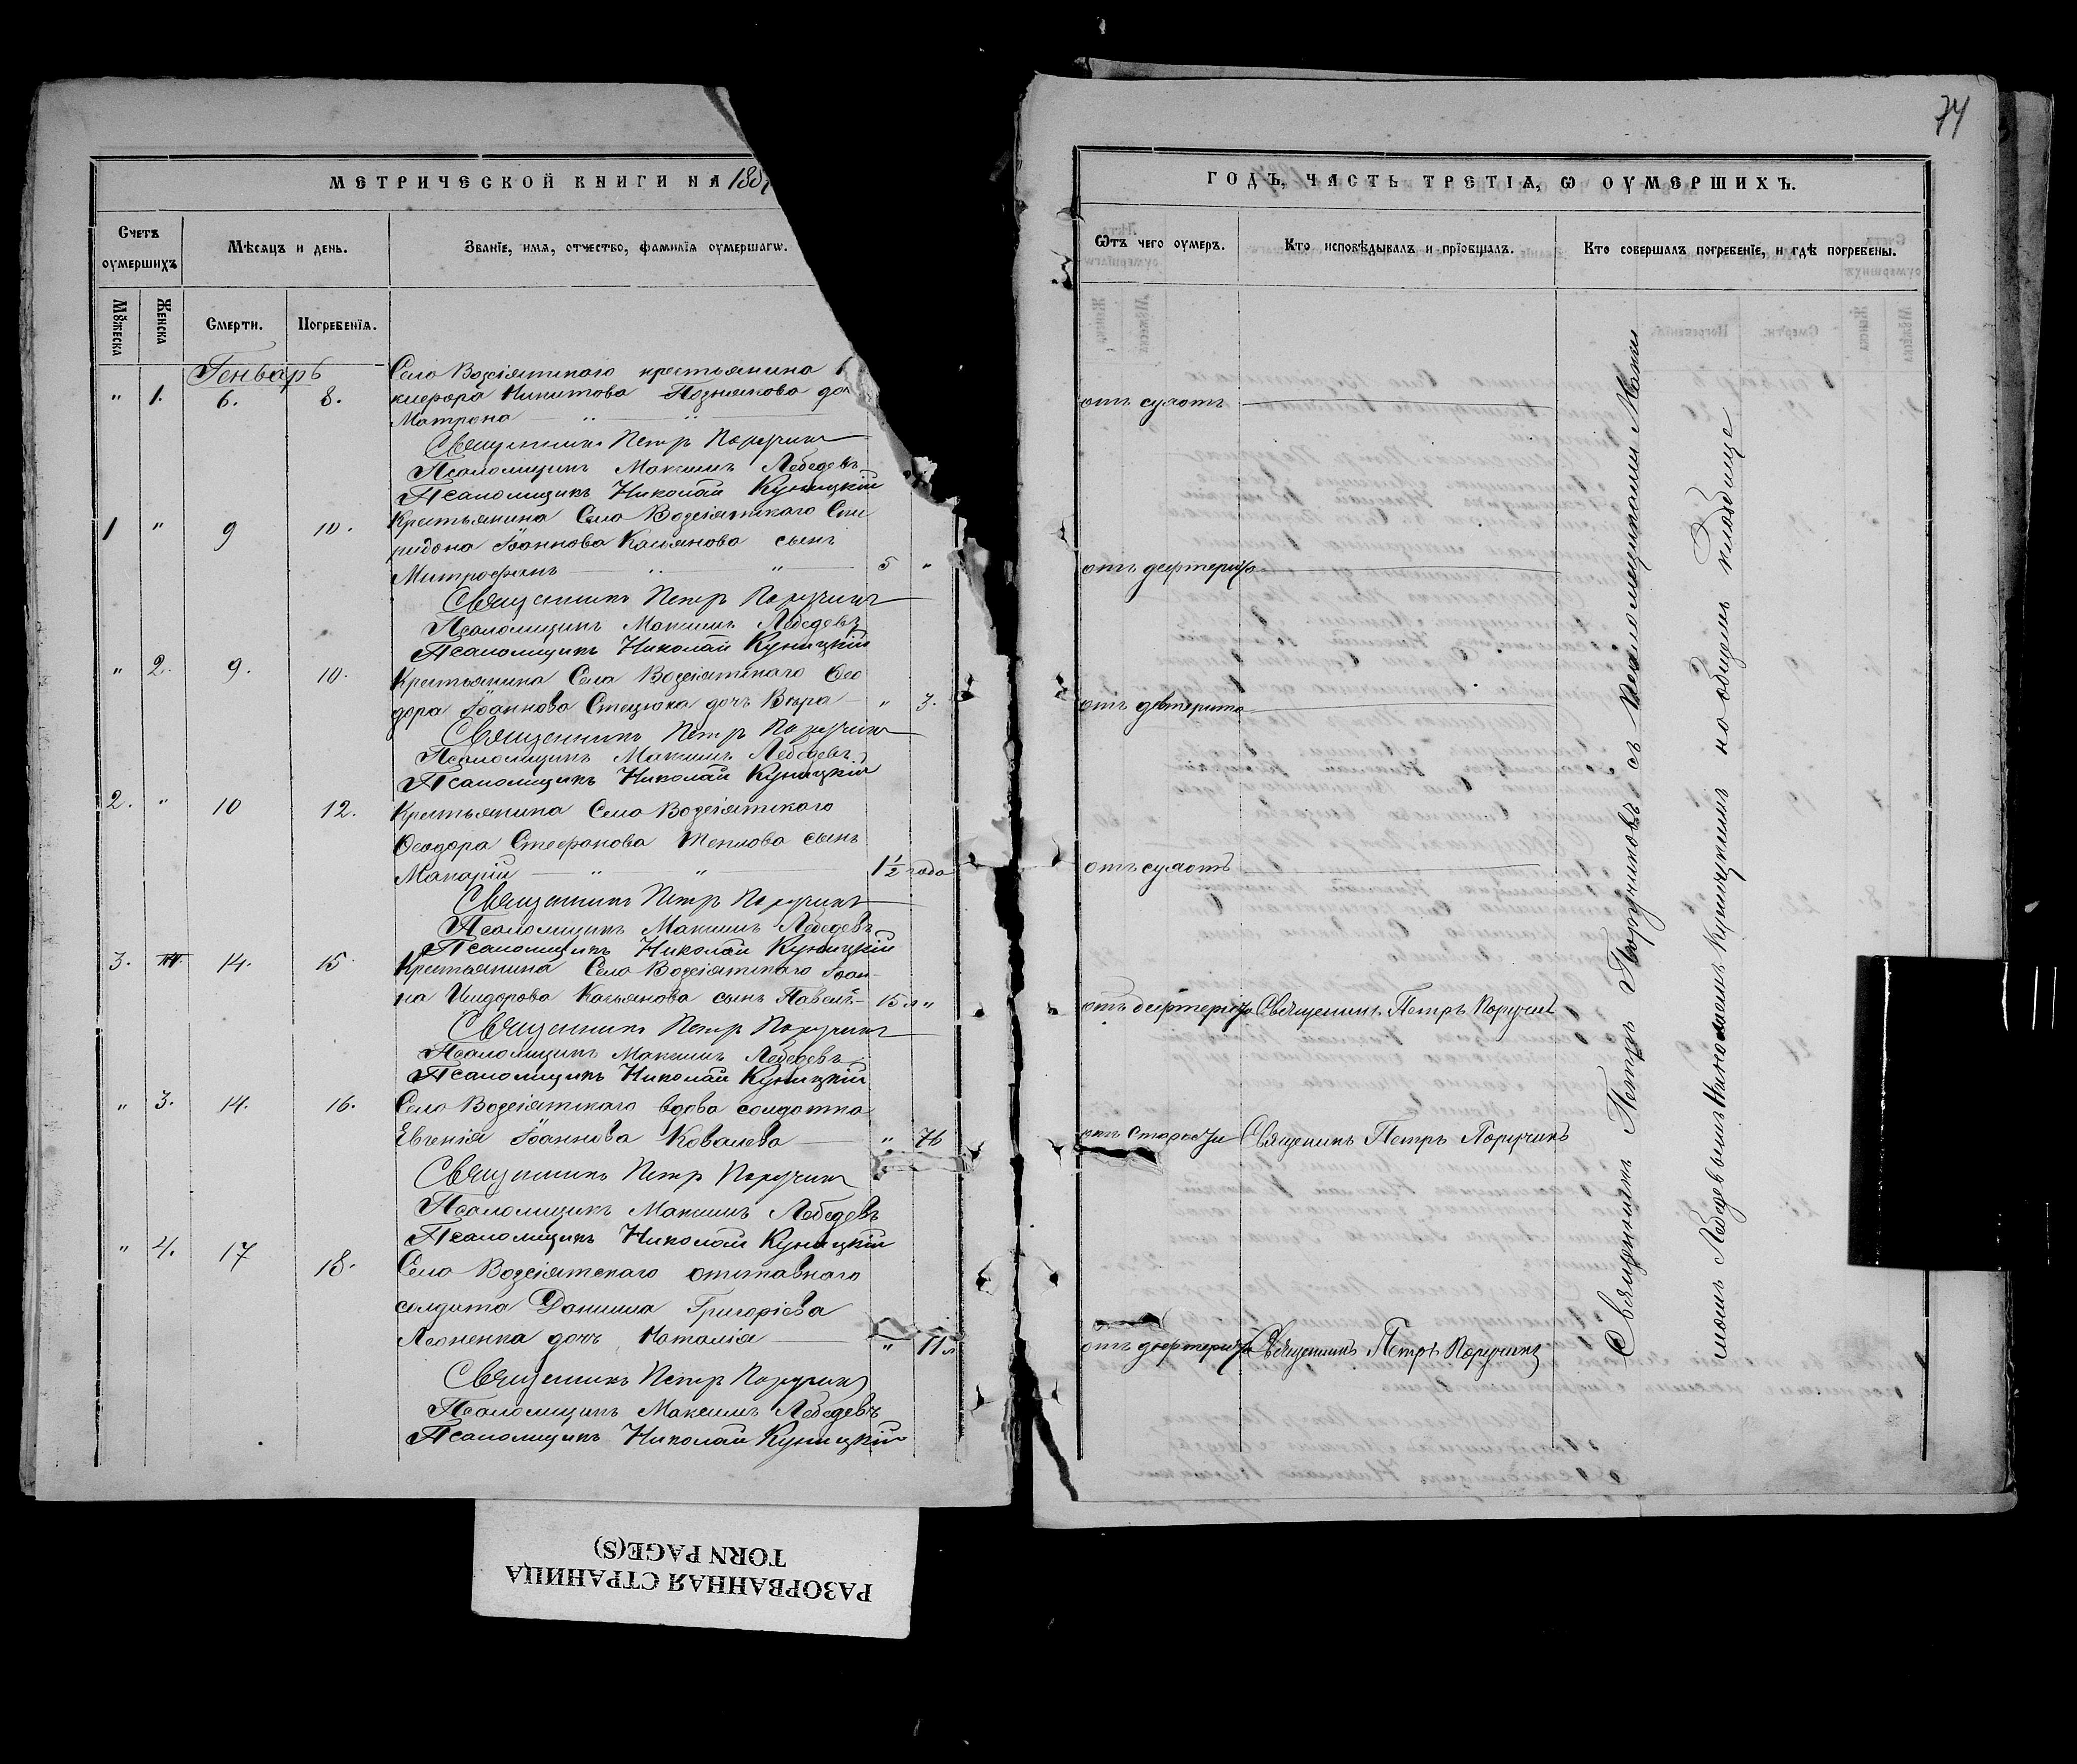 74
МЕТРИЧЕСКОЙ КНИГИ НА 188
Счетъ оумершихъ
Мѣсяцъ и день.
Званїе, имя, отчество, фамилїя оумершагѡ.
Мꙋжеска
Женска
Смерти.
Погребенїя.
Генварь
" 1. 6. 8. Села Возсіятскаго крестьянина
кифора Никитова Познякова до
Матрона " "
Священникъ Петръ Поручик
Псаломщикъ Максимъ Лебедевъ
Псаломщикъ Николай Куницкій
1 " 9 10. Крестьянина Села Возсіятскаго Спи
ридона Іоаннова Касьянова сынъ
Митрофанъ " " 5 "
Священникъ Петръ Поручикъ
Псаломщикъ Максимъ Лебедевъ
Псаломщикъ Николай Куницкій
" 2. 9. 10. Крестьянина Села Возсіятскаго Ѳео
дора Іоаннова Стецюка дочь Вѣра " 3.
Священникъ Петръ Поручик
Псаломщикъ Максимъ Лебедевъ
Псаломщикъ Николай Куницкій
2. " 10 12. Крестьянина Села Возсіятскаго
Ѳеодора Стефанова Теплова сынъ
Макарій " " 1½ года
Священникъ Петръ Поручикъ
Псаломщикъ Максимъ Лебедевъ
Псаломщикъ Николай Куницкій
3. 14. 15. Крестьянина Села Возсіятскаго Іоан
на Исидорова Касьянова сынъ Павелъ 15 л "
Священникъ Петръ Поручикъ
Псаломщикъ Максимъ Лебедевъ
Псаломщикъ Николай Куницкій
" 3. 14. 16. Села Возсіятскаго вдова солдатка
Евгенія Іоаннова Ковалева " 76
Священникъ Петръ Поручик
Псаломщикъ Максимъ Лебедевъ
Псаломщикъ Николай Куницкій
" 4. 17 18. Села Возсіятскаго отставного
солдата Даниила Григоріева
Леоненка дочь Наталія " 11 л
Священникъ Петръ Поручик
Псаломщикъ Максимъ Лебедевъ
Псаломщикъ Николай Куницкій
ГОДЪ, ЧАСТЬ ТРЕТІЯ, Ѡ ОУМЕРШИХЪ.
Ѿтъ чего оумеръ.
Кто исповѣдывалъ и прїобщалъ.
Кто совершалъ погребенїе, и гдѣ погребены.
отъ сухотъ
отъ дефтерита
отъ дефтерита
отъ сухотъ
отъ дефтерита Священникъ Петръ Поручик
отъ старости Священникъ Петръ Поручикъ
отъ дефтерита Священникъ Петръ Поручикъ
Священникъ Петръ Поручиковъ съ псаломщиками Макси
момъ Лебедевымъ и Николаемъ Куницкимъ на общемъ кладбище
РАЗОРВАННАЯ СТРАНИЦА
TORN PAGE(S)